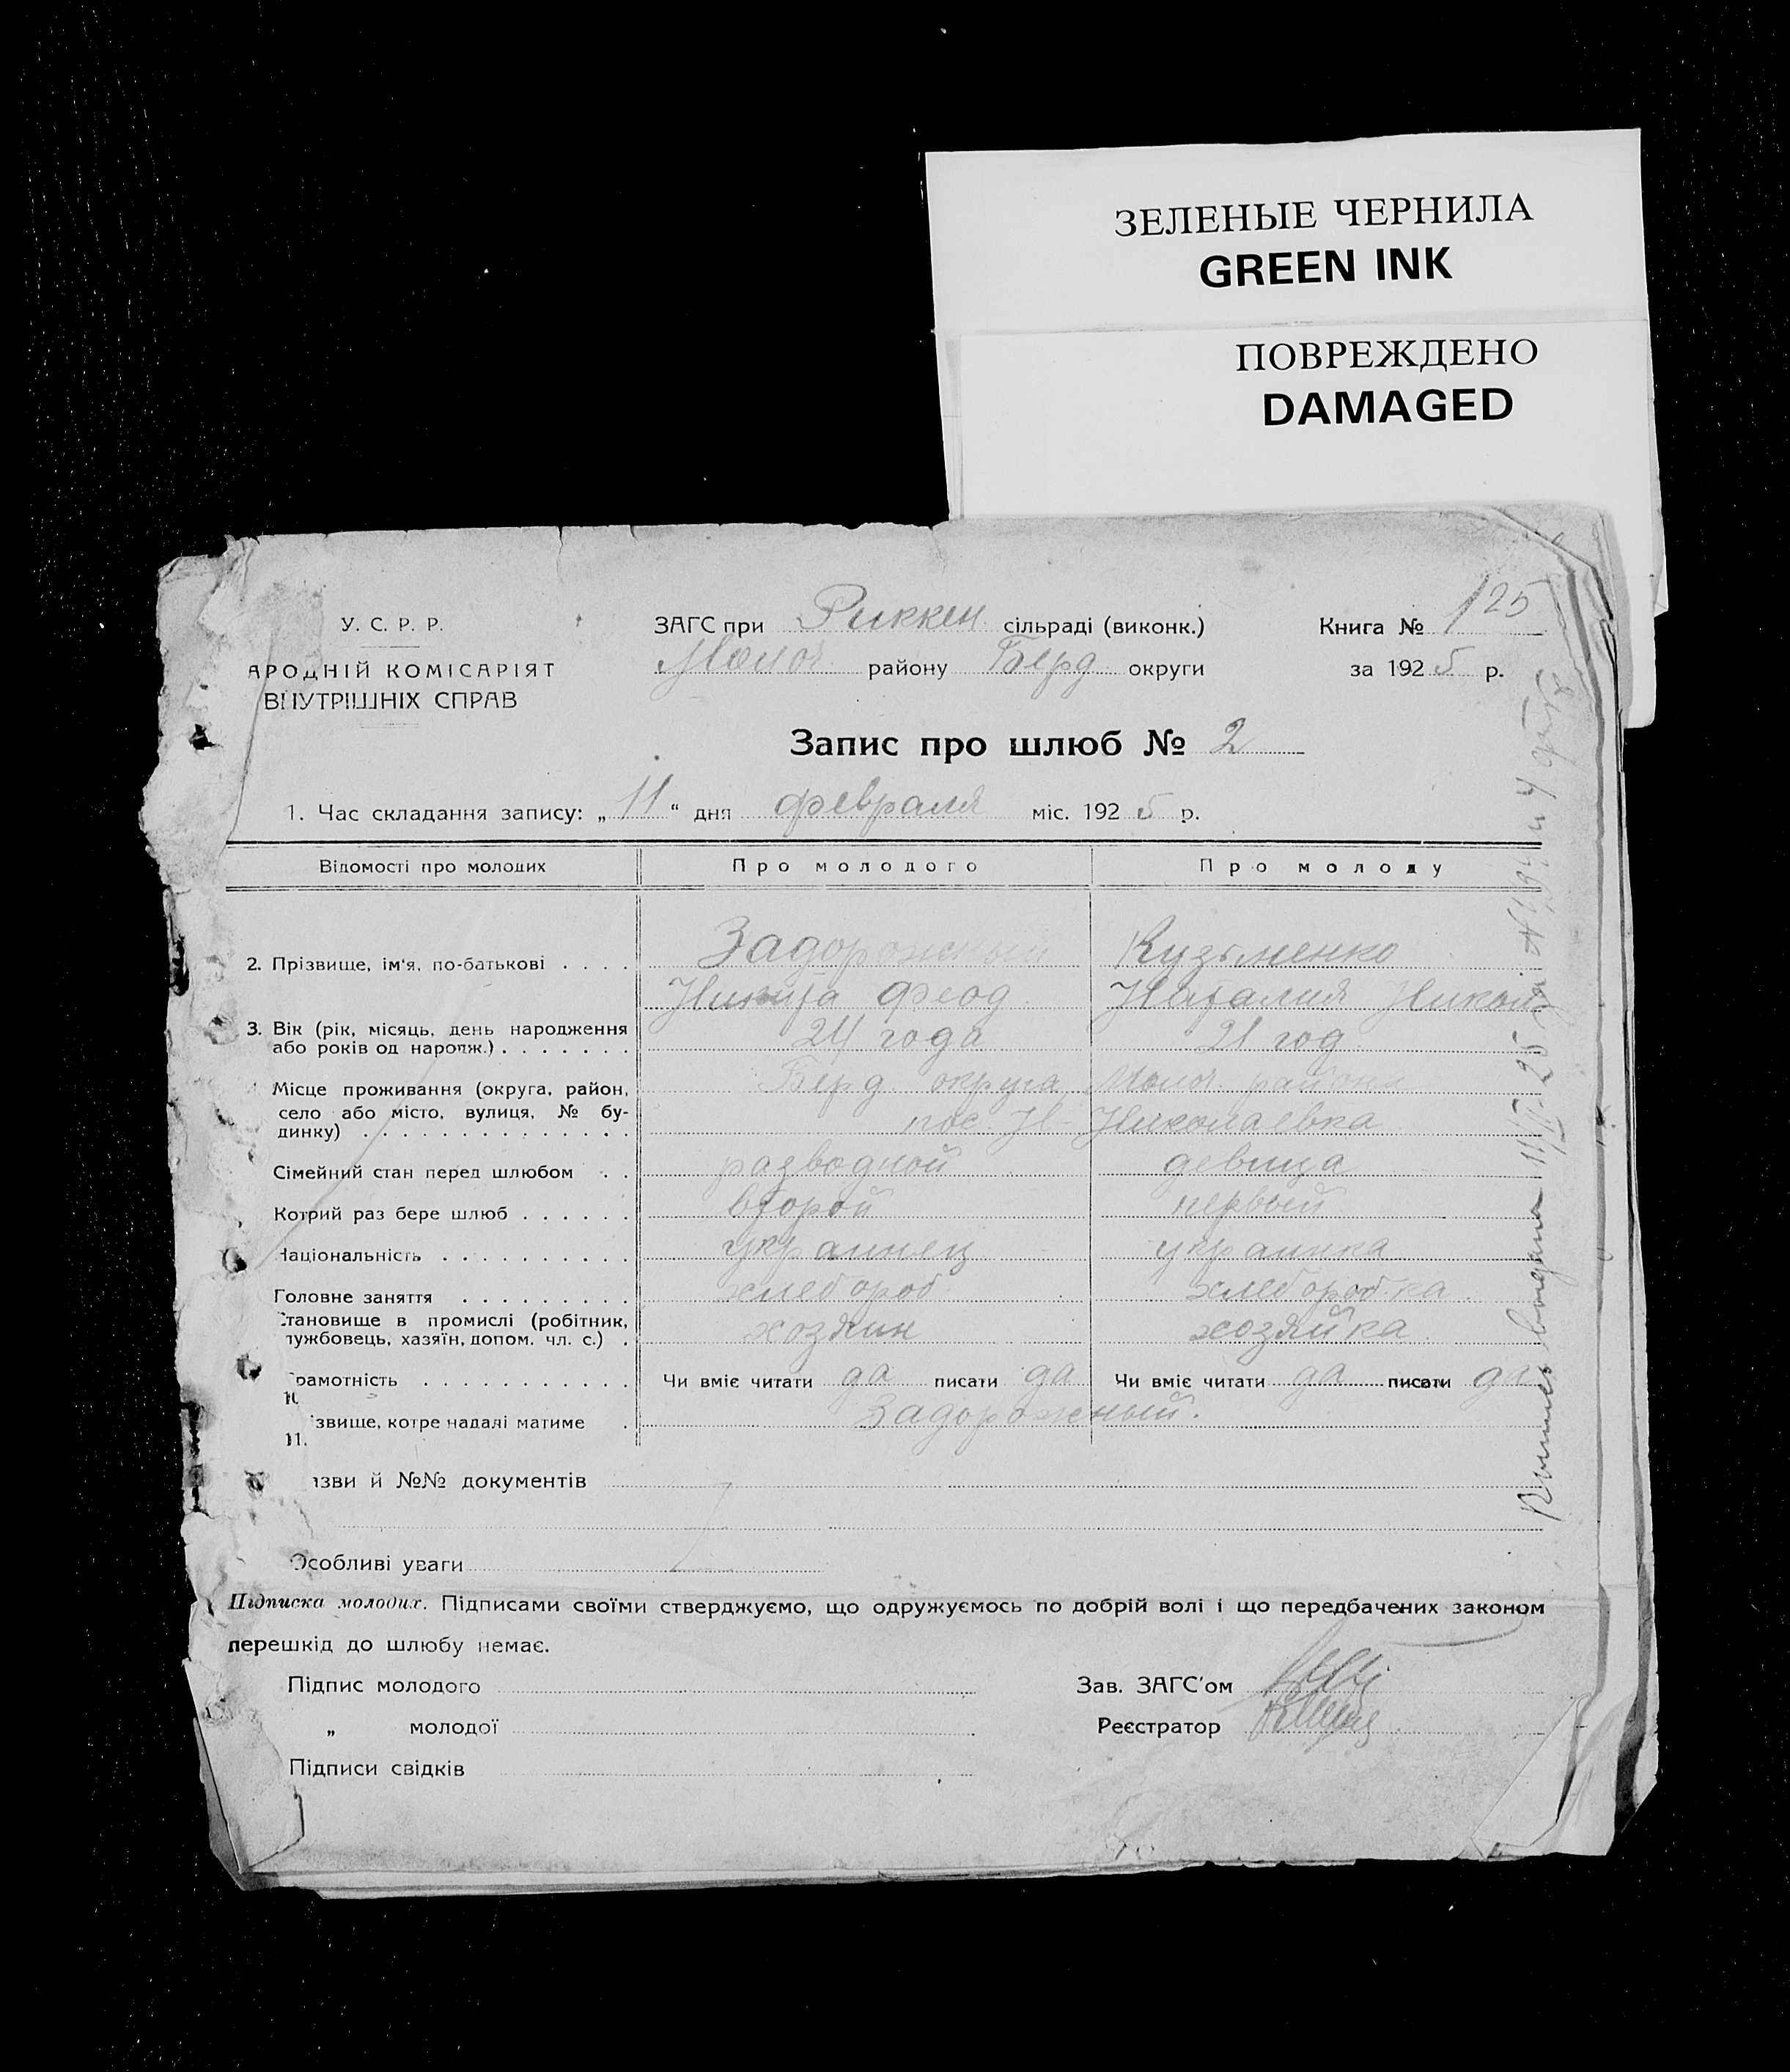 ЗЕЛЕНЫЕ ЧЕРНИЛА
GREEN INK
ПОВРЕЖДЕНО
DAMAGED
У. С. Р. Р.
АРОДНІЙ КОМІСАРІЯТ
ВНУТРІШНІХ СПРАВ
ЗАГС при Риккен сільраді (виконк.)
Молоч. району Берд. округи
Книга № 125
за 1925 р.
Запис про шлюб № 2
1. Час складання запису: „11“ дня февраля міс. 1925 р.
Відомості про молодих Про молодого Про молоду
2. Прізвище, ім‘я, по-батькові . . . . Задорожный Кузьменко
Никита Феод. Наталия Никол
3. Вік (рік, місяць, день народження
або років од народж.) . . . . . . . 24 года 21 год
Місце проживання (округа, район, Берд. округа Молоч. района
село або місто, вулиця, № бу-
динку) . . . . . . . . . . . . . . пос. Н-Николаевка
Сімейний стан перед шлюбом . . разводной девица
Котрий раз бере шлюб . . . . . . второй первый
Національність . . . . . . . . . . украинец украинка
Головне заняття . . . . . . . . . хлебороб хлеборобка
Становище в промислі (робітник,
лужбовець, хазяїн, допом. чл. с.) . хозяин хозяйка
рамотність . . . . . . . . . . . Чи вміє читати да писати да Чи вміє читати да писати да
10
звище, котре надалі матиме . Задорожный.
11.
азви й №№ документів
Особливі уваги
Підписка молодих. Підписами своїми стверджуємо, що одружуємось по добрій волі і що передбачених законом
перешкід до шлюбу немає.
Підпис молодого
„ молодої
Підписи свідків
Зав. ЗАГС'ом
Реєстратор
Выпись выдана 11/II-25